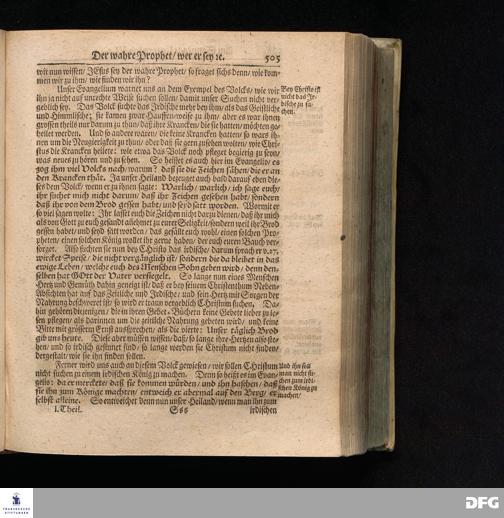 Der wahre Prophet/ wer er sey ꝛc. 505
wir nun wissen/ JEsus sey der wahre Prophet/ so fraget sichs denn/ wie kom-
men wir zu ihm/ wie finden wir ihn?
Unser Evangelium warnet uns an dem Exempel des Volcks/ wie wir
ihn ja nicht auf unrechte Weise suchen sollen/ damit unser Suchen nicht ver-
geblich sey. Das Volck suchte das Irdische mehr bey ihm/ als das Geistliche
und Himmlische; sie kamen zwar Hauffen-weise zu ihm/ aber es war ihnen
grossen theils nur darum zu thun/ daß ihre Krancken/ die sie hatten/ möchten ge-
heilet werden. Und so andere waren/ die keine Krancken hatten/ so wars ih-
nen um die Neugierigkeit zu thun/ oder daß sie gern zusehen wolten/ wie Chri-
stus die Krancken heilete: wie etwa das Volck noch pfleget begierig zu seyn/
was neues zu hören und zu sehen. So heisset es auch hier im Evangelio/ es
zog ihm viel Volcks nach/ warum? daß sie die Zeichen sahen/ die er an
den Krancken thät. Ja unser Heiland bezeuget auch bald darauf eben die-
ses dem Volck/ wenn er zu ihnen sagte: Warlich/ warlich/ ich sage euch/
ihr suchet mich nicht darum/ daß ihr Zeichen gesehen habt/ sondern
daß ihr von dem Brod gessen habt/ und seyd satt worden. Womit er
so viel sagen wolte: Ihr lasset euch die Zeichen nicht darzu dienen/ daß ihr mich
als von Gott zu euch gesandt annehmet zu eurer Seligkeit/ sondern weil ihr Brod
gessen habet/ und seyd satt worden/ das gefällt euch wohl/ einen solchen Pro-
pheten/ einen solchen König wollet ihr gerne haben/ der euch euren Bauch ver-
sorget. Also suchten sie nun bey Christo das irdische/ darum sprach er v. 27.
wircket Speise/ die nicht vergänglich ist/ sondern die da bleibet in das
ewige Leben/ welche euch des Menschen Sohn geben wird/ denn den-
selben hat GOtt der Vater versiegelt. So lange nun eines Menschen
Hertz und Gemüth dahin geneigt ist/ daß er bey seinem Christenthum Neben-
Absichten hat auf das Zeitliche und Irdische/ und sein Hertz mit Sorgen der
Nahrung beschweret ist/ so wird er traun vergeblich Christum suchen. Da-
hin gehören diejenigen/ die in ihren Gebet-Büchern keine Gebete lieber zu le-
sen pflegen/ als darinnen um die zeitliche Nahrung gebeten wird/ und keine
Bitte mit grösserm Ernst aussprechen/ als die vierte: Unser täglich Brod
gib uns heute. Diese aber müssen wissen/ daß/ so lange ihre Hertzen also ste-
hen/ und so irdisch gesinnet sind/ so lange werden sie Christum nicht finden/
dergestalt/ wie sie ihn finden sollen.
Ferner wird uns auch an diesem Volck gewiesen/ wir sollen Christum
nicht suchen zu einem irdischen König zu machen. Denn so heißt es im Evan-
gelio: da er merckete/ daß sie kommen würden/ und ihn haschen/ daß
sie ihn zum Könige machten/ entweich er abermal auf den Berg/ er
selbst alleine. So entweichet denn nun unser Heiland/ wenn man ihn zum
I. Theil. Sss irdischen
Bey Christo ist
nicht das Ir-
dische zu su-
chen.
Und ihn soll
man nicht su-
chen zum irdi-
schen König zu
machen/
FRANCKESCHE
STIFTUNGEN
DFG